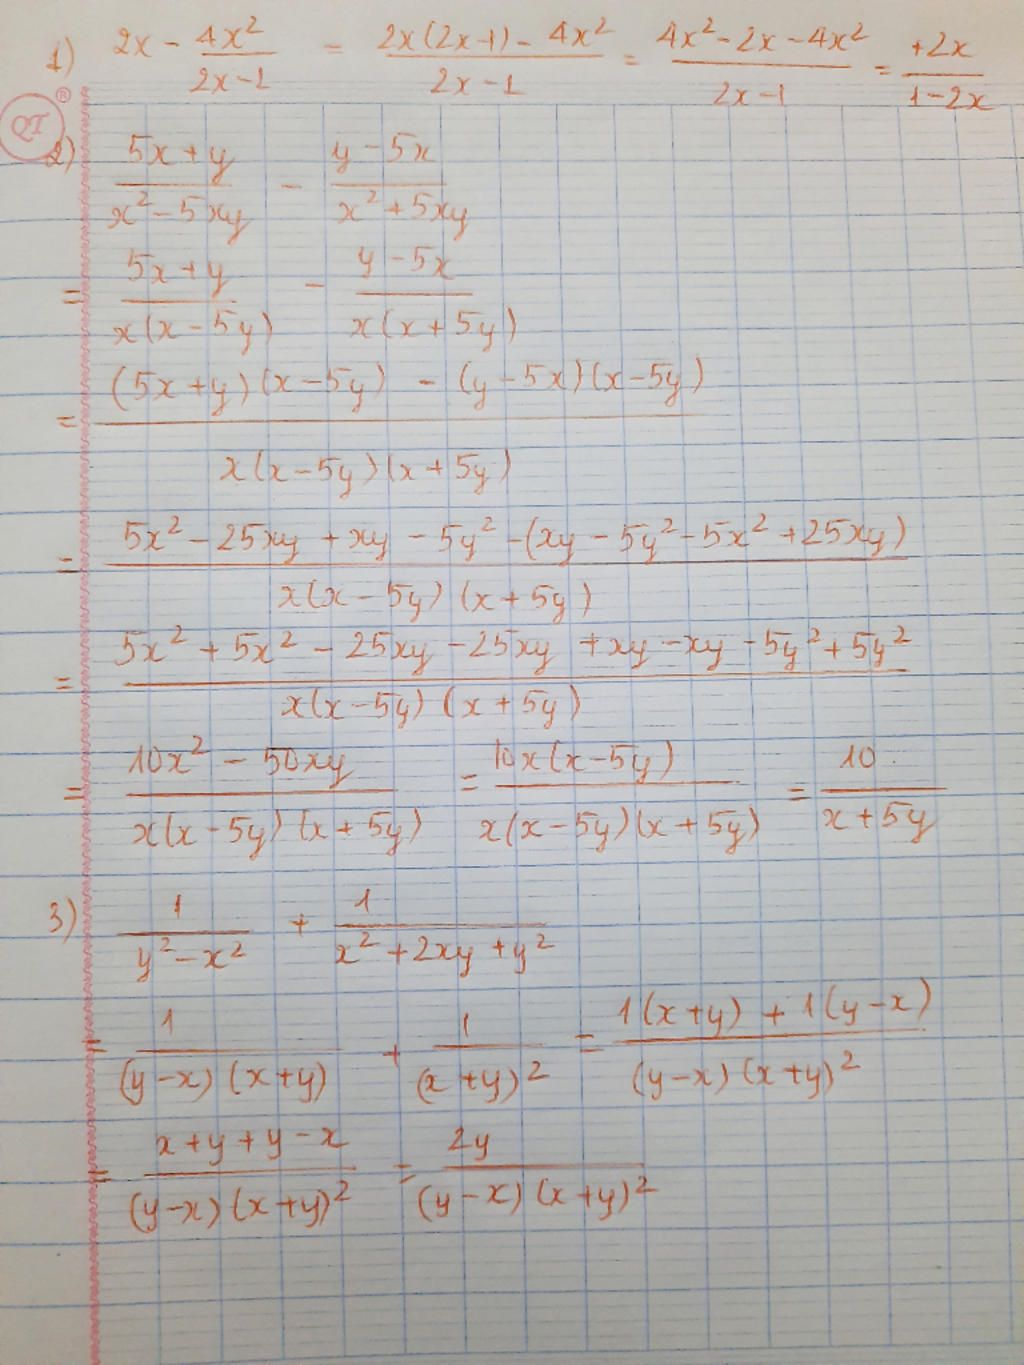 1) 2x - 4x²/(2x-1) = (2x(2x-1) - 4x²)/(2x-1) = (4x² - 2x - 4x²)/(2x-1) = +2x/(1-2x)
2) (5x+y)/(x²-5xy) - (y-5x)/(x²+5xy)
= (5x+y)/(x(x-5y)) - (y-5x)/(x(x+5y))
= ((5x+y)(x-5y) - (y-5x)(x-5y))/(x(x-5y)(x+5y))
= (5x² - 25xy + xy - 5y² - (xy - 5y² - 5x² + 25xy))/(x(x-5y)(x+5y))
= (5x² + 5x² - 25xy - 25xy + xy - xy - 5y² + 5y²)/(x(x-5y)(x+5y))
= (10x² - 50xy)/(x(x-5y)(x+5y)) = 10x(x-5y)/(x(x-5y)(x+5y)) = 10/(x+5y)
3) 1/(y²-x²) + 1/(x²+2xy+y²)
= 1/((y-x)(x+y)) + 1/(x+y)² = (1(x+y) + 1(y-x))/((y-x)(x+y)²)
= (x+y+y-x)/((y-x)(x+y)²) = 2y/((y-x)(x+y)²)